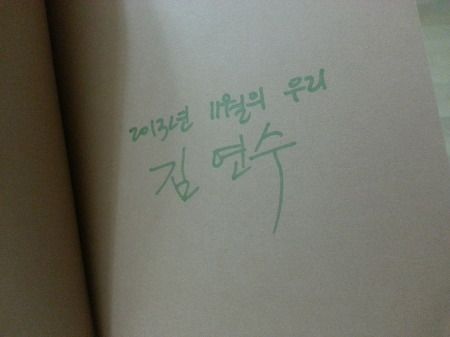 2013년 11월의 우리
김연수